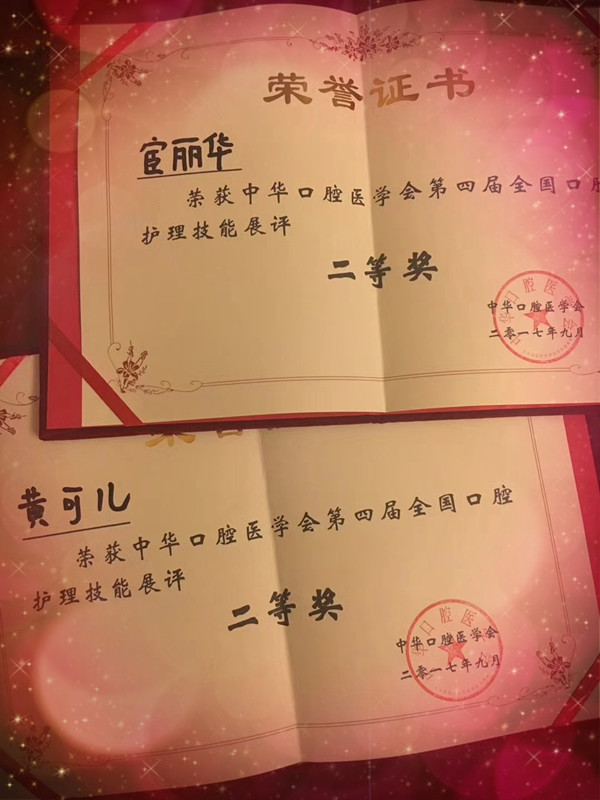 荣誉证书
宦丽华
荣获中华口腔医学会第四届全国口腔
护理技能展评
二等奖
中华口腔医学会
二零一七年九月
黄可儿
荣获中华口腔医学会第四届全国口腔
护理技能展评
二等奖
中华口腔医学会
二零一七年九月